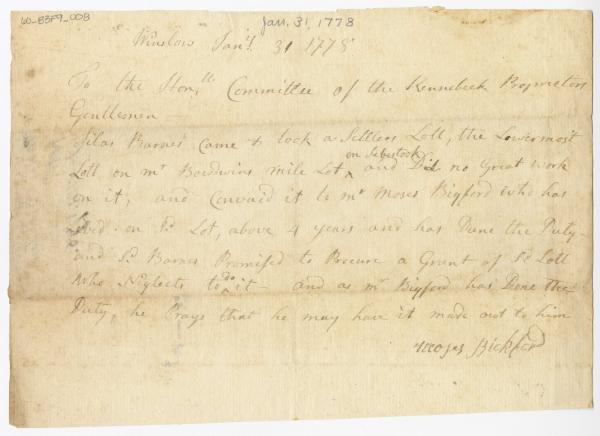 60-B3F9-008
Jan. 31, 1778
Winslow Jany. 31 1778
To the Honble Committee of the Kennebeck Proprietors
Gentlemen
Silas Barnes Came & took a Settlers Lott, the Lowermost
Lott on mr Bowdwins mile Lot, on Sebestook and Did no Great work
on it, and Convaid it to mr Moses Bigford who has
lived on Sd Lot, above 4 years and has Dune the Duty
and Sd Barnes Promised to Procure a Grant of Sd Lott
Who Neglects to Do it - and as mr Bigford has Dune the
Duty, he Prays that he may have it made out to him
Moses Bickford